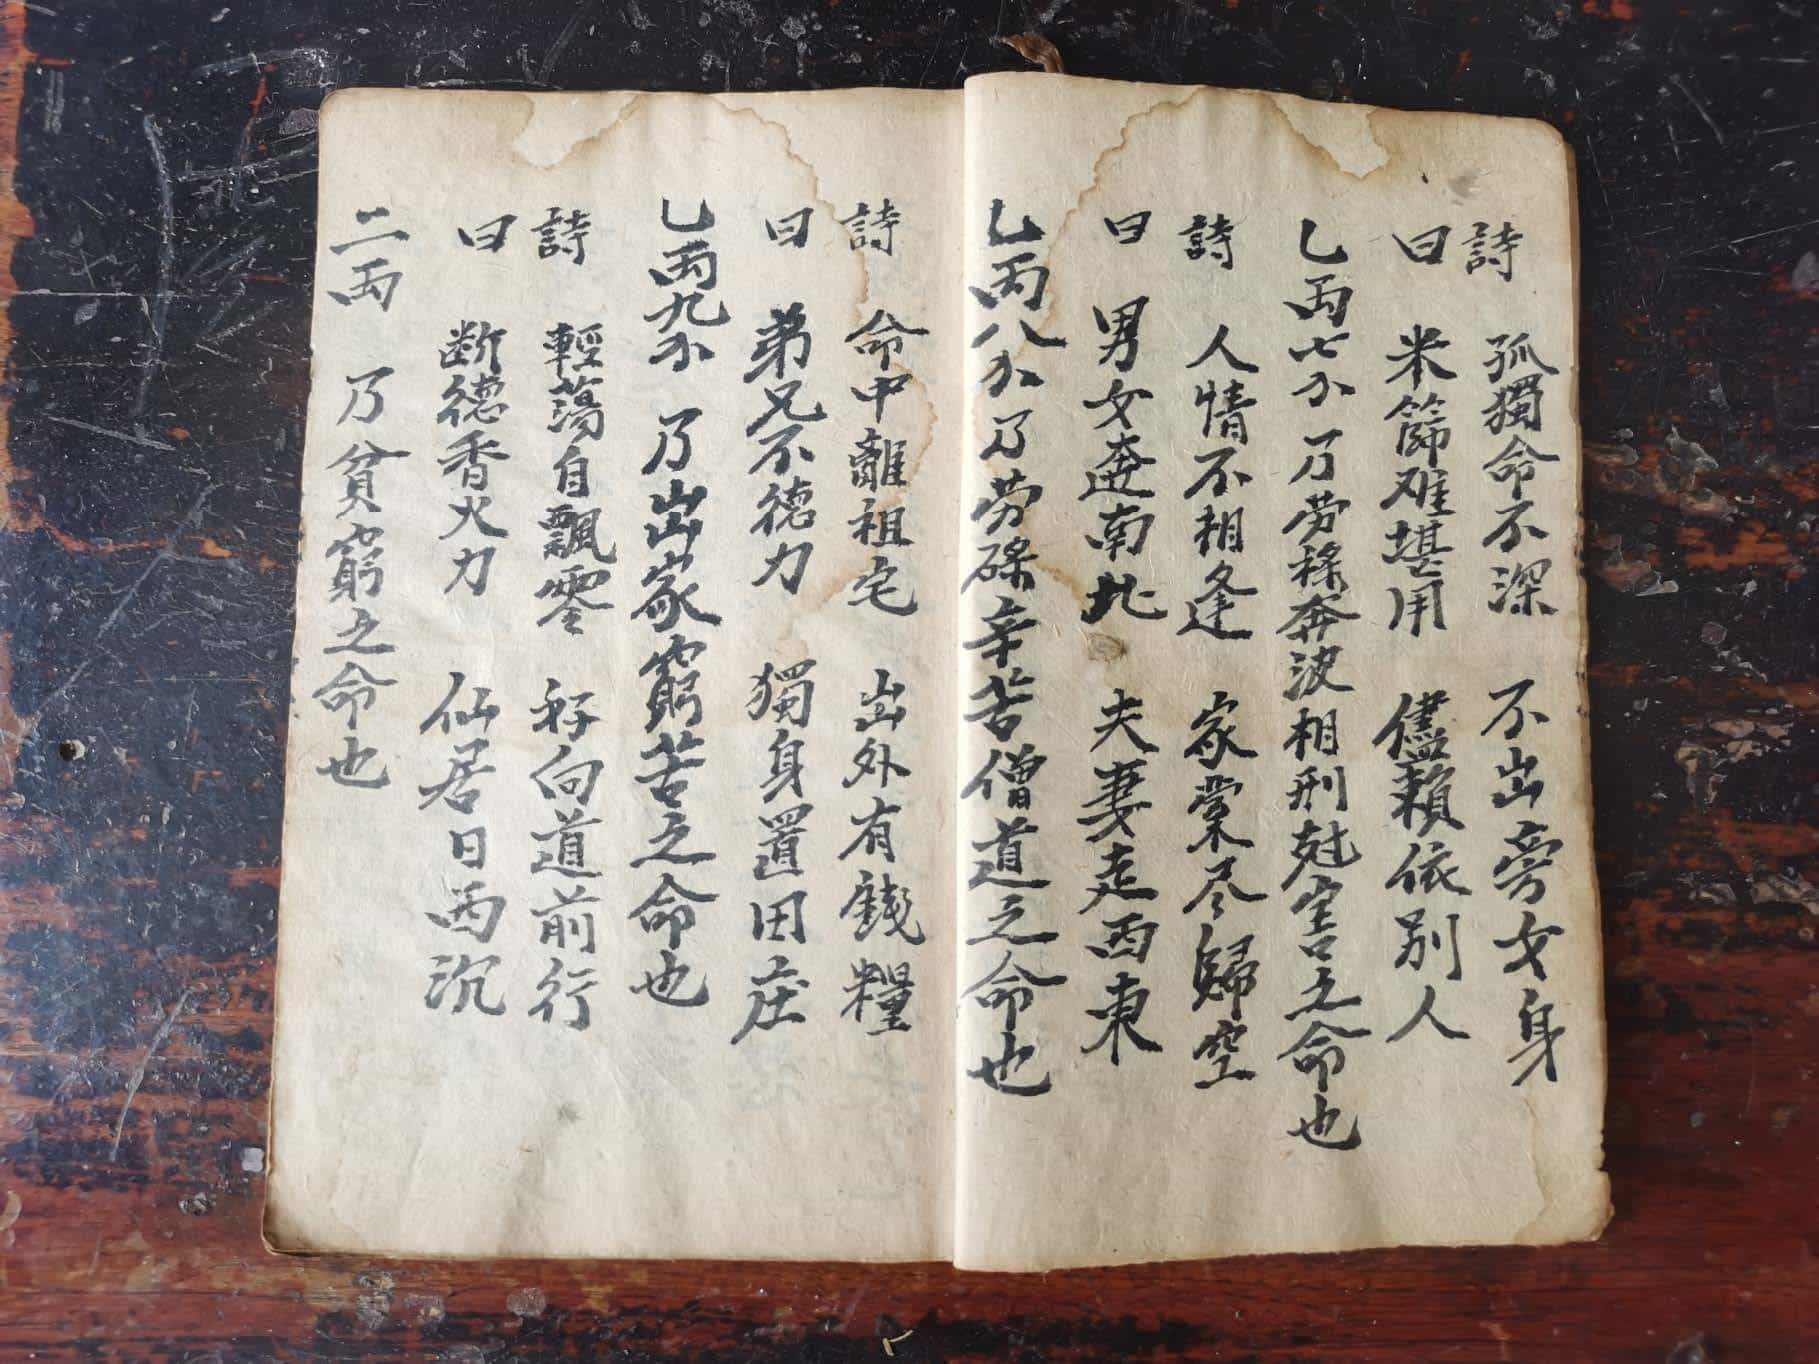 詩 孤獨命不深 不出旁女身
曰 米篩难堪用 儘賴依别人
乙両七分 乃劳稌奔波相刑尅害之命也
詩 人情不相逢 家業尽歸空
曰 男女奔南北 夫妻走西東
乙両八分 乃劳碌辛苦僧道之命也
詩 命中離祖宅 出外有錢糧
曰 弟兄不德力 獨身置田庄
乙両九分 乃出家窮苦之命也
詩 輕蕩自飄零 好向道前行
曰 断德香火力 仙居日西沉
二両 乃貧窮之命也